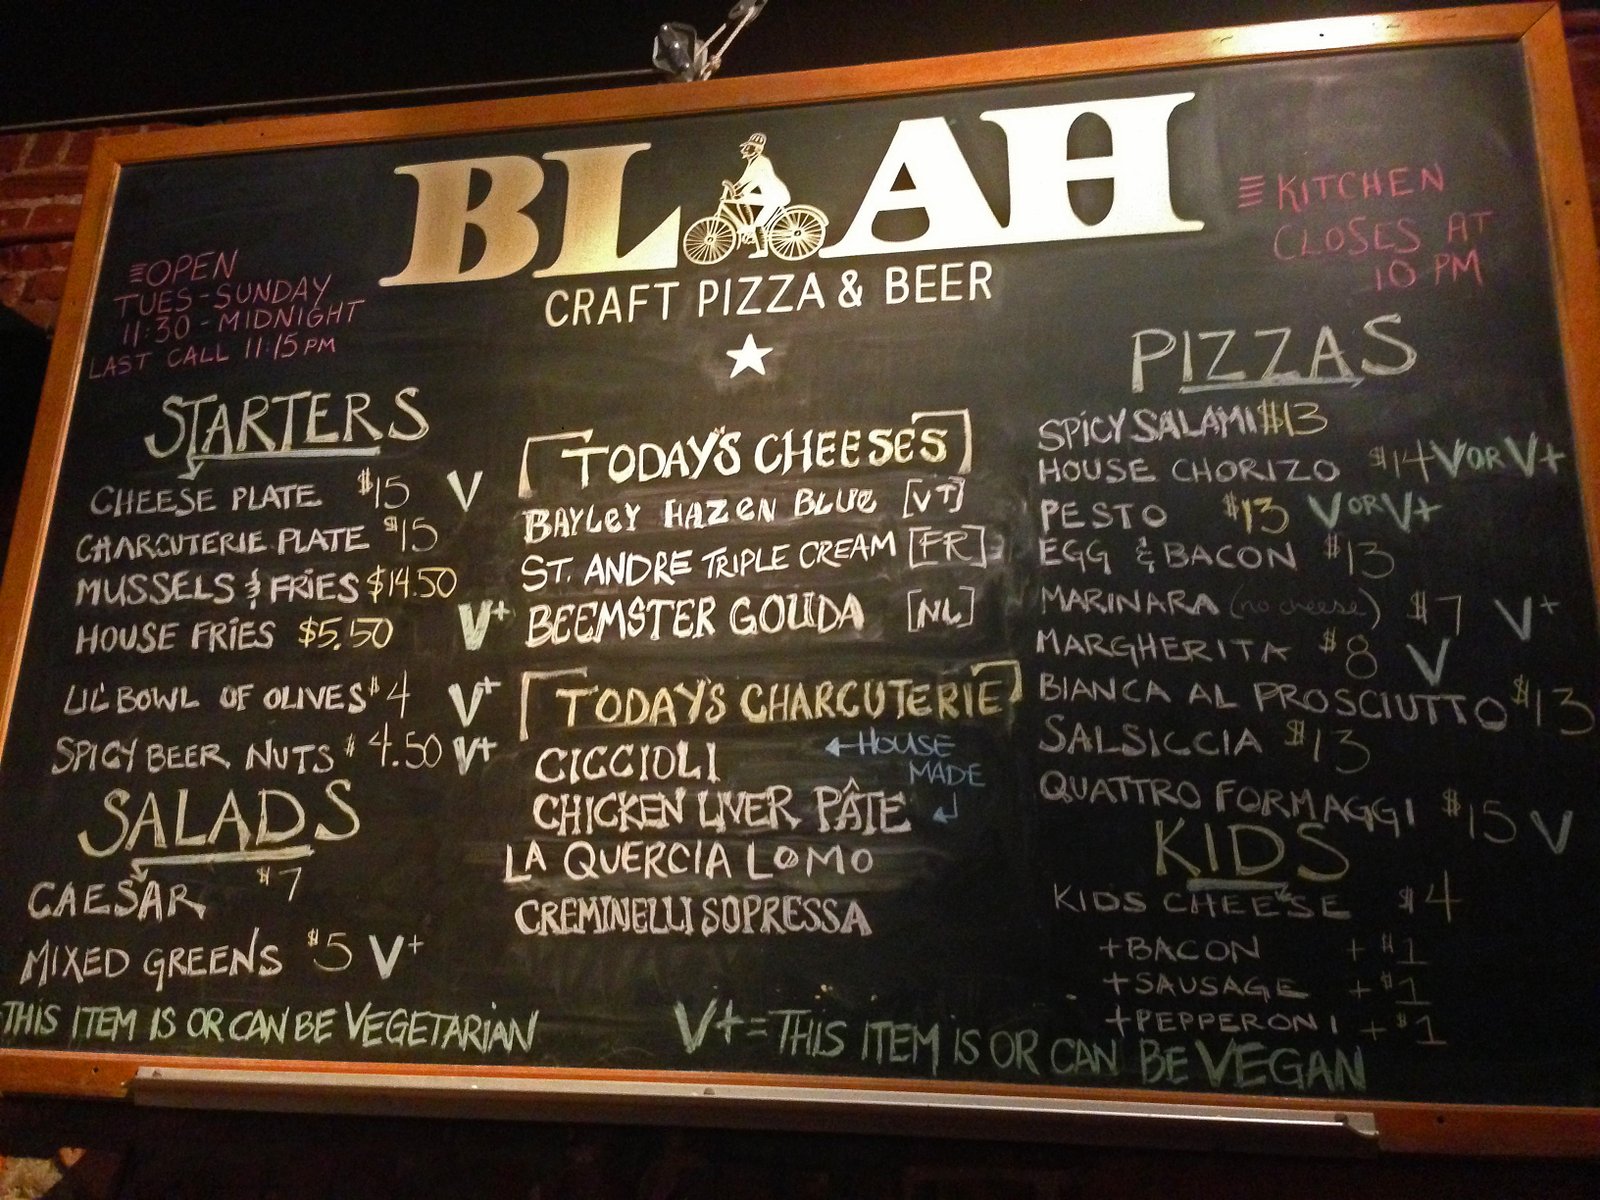 BLAH
CRAFT PIZZA & BEER
OPEN
TUES-SUNDAY
11:30-MIDNIGHT
LAST CALL 11:15PM
KITCHEN
CLOSES AT
10 PM
STARTERS
CHEESE PLATE $15 V
CHARCUTERIE PLATE $15
MUSSELS & FRIES $14.50
HOUSE FRIES $5.50 V+
LIL' BOWL OF OLIVES $4 V+
SPICY BEER NUTS $4.50 V+
SALADS
CAESAR $7
MIXED GREENS $5 V+
TODAY'S CHEESES
BAYLEY HAZEN BLUE [VT]
ST. ANDRE TRIPLE CREAM [FR]
BEEMSTER GOUDA [NL]
TODAY'S CHARCUTERIE
CICCIOLI ←HOUSE
MADE
CHICKEN LIVER PÂTE
LA QUERCIA LOMO
CREMINELLI SOPRESSA
PIZZAS
SPICY SALAMI $13
HOUSE CHORIZO $14 V OR V+
PESTO $13 V OR V+
EGG & BACON $13
MARINARA (no cheese) $7 V+
MARGHERITA $8 V
BIANCA AL PROSCIUTTO $13
SALSICCIA $13
QUATTRO FORMAGGI $15 V
KIDS
KIDS CHEESE $4
+BACON +$1
+SAUSAGE +$1
+PEPPERONI +$1
THIS ITEM IS OR CAN BE VEGETARIAN
V+ = THIS ITEM IS OR CAN BE VEGAN